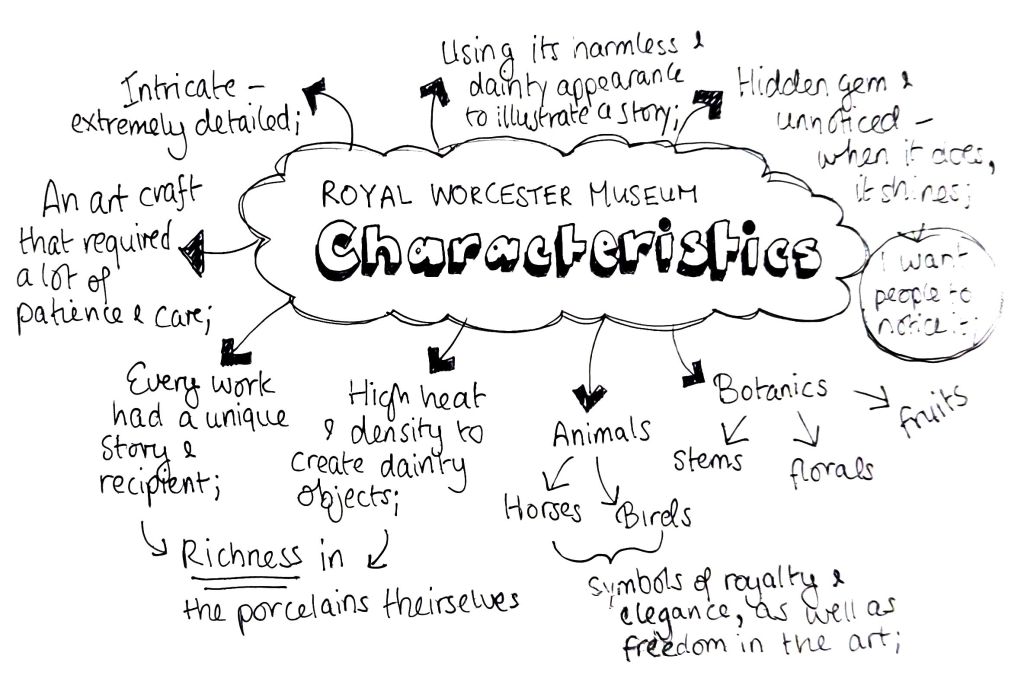 ROYAL WORCESTER MUSEUM
Characteristics
Intricate -
extremely detailed;
Using its harmless &
dainty appearance
to illustrate a story;
Hidden gem &
unnoticed -
when it does,
it shines;
I want
people to
notice it;
An art craft
that required
a lot of
patience & care;
Every work
had a unique
story &
recipient;
High heat
& density to
create dainty
objects;
Richness in
the porcelains theirselves
Animals
Horses
Birds
Symbols of royalty &
elegance, as well as
freedom in the art;
Botanics
Stems
florals
fruits